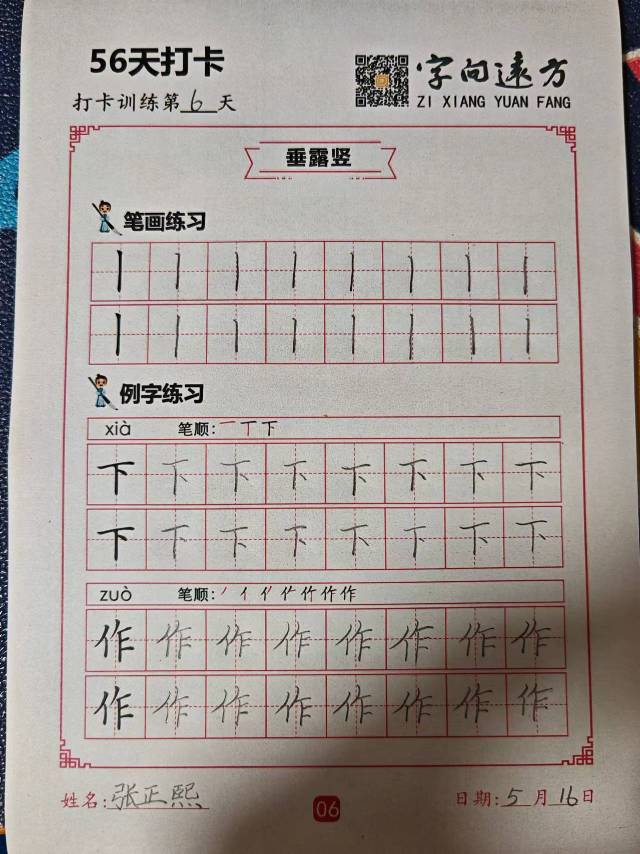 56天打卡
打卡训练第6天
字向远方
ZI XIANG YUAN FANG
垂露竖
笔画练习
丨 丨 丨 丨 丨 丨 丨 丨
丨 丨 丨 丨 丨 丨 丨 丨
例字练习
xià 笔顺:一丅下
下 下 下 下 下 下 下 下
下 下 下 下 下 下 下 下
zuò 笔顺:
作 作 作 作 作 作 作 作
作 作 作 作 作 作 作 作
姓名:张正熙
06
日期:5月16日